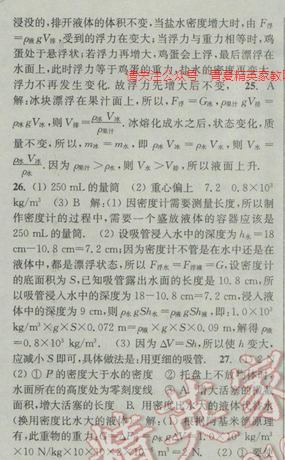 浸没的,排开液体的体积不变,当盐水密度增大时,由 F浮
=ρ液gV排,受到的浮力在变大;当浮力与重力相等时,鸡
蛋处于悬浮状;若浮力再增大,鸡蛋会上浮,最后漂浮在
水面上,此时浮力等于鸡蛋的重力,盐水的密度再变大,
浮力不再发生变化.故浮力先增大后不变. 25. A
解:冰块漂浮在果汁面上,所以,F浮=G冰,ρ果汁gV排=
ρ冰gV冰,则V排=ρ冰V冰/ρ果汁.冰熔化成水之后,状态变化,质
量不变,所以,m冰=m水,即ρ冰V冰=ρ水V水,则V水=
ρ冰V冰/ρ水.因为ρ果汁>ρ水,则V水>V排,所以液面上升.
26. (1) 250 mL的量筒 (2) 重心偏上 7.2 0.8×10³
kg/m³ (3) B 解:(1)因密度计需要测量长度,所以制
作密度计的过程中,需要一个盛放液体的容器应该是
250 mL的量筒. (2) 设吸管浸入水中的深度为h水=18
cm-10.8 cm=7.2 cm;因为密度计不管是在水中还是在
液体中,都是漂浮状态,所以F浮水=F浮液=G,设密度计
的底面积为S,已知吸管露出水面的长度是10.8 cm,所
以吸管浸入水中的深度为18-10.8 cm=7.2 cm,浸入液
体中的深度为9 cm,则ρ水gSh水=ρ液gSh液,即:1.0×10³
kg/m³×g×S×0.072 m=ρ液×g×S×0.09 m,解得ρ液
=0.8×10³ kg/m³. (3) 因为ΔV=Sh,所以使h变大,
应减小S即可,具体做法是:用更细的吸管. 27.
(2) ① P的密度大于水的密度 ② 托盘上不放
水面所在的高度处为零刻度线
面积,增大活塞的长度 B. 用密度比水大的液体代替水
(换用密度比水大的液体) 解:(1) 根据阿基米德原理